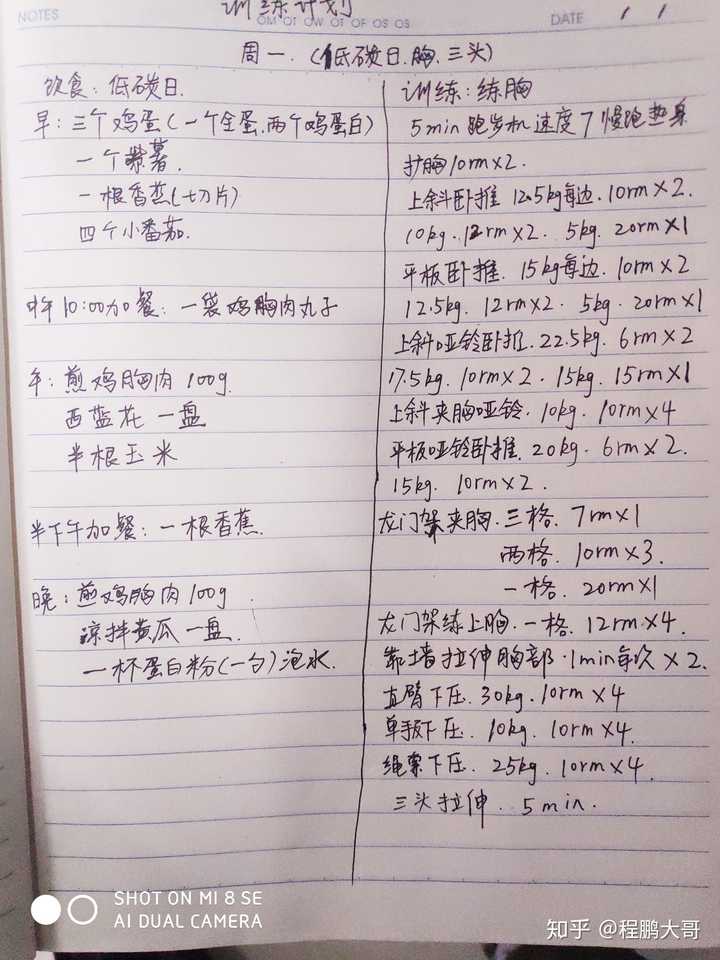 NOTES
训练计划
DATE / /
周一.(低碳日.胸.三头)
饮食:低碳日.
早:三个鸡蛋(一个全蛋.两个鸡蛋白)
一个紫薯.
一根香蕉(切片)
四个小番茄.
10:00加餐:一袋鸡胸肉丸子
午:煎鸡胸肉 100g.
西蓝花 一盘
半根玉米
半下午加餐:一根香蕉.
晚:煎鸡胸肉 100g.
凉拌黄瓜 一盘.
一杯蛋白粉(一勺)泡水.
训练:练胸
5min 跑步机 速度7 慢跑热身
扩胸10rm×2.
上斜卧推 12.5kg每边.10rm×2.
10kg.12rm×2. 5kg. 20rm×1
平板卧推. 15kg每边. 10rm×2
12.5kg. 12rm×2. 5kg. 20rm×1
上斜哑铃卧推.22.5kg. 6rm×2
17.5kg. 10rm×2. 15kg. 15rm×1
上斜夹胸哑铃. 10kg. 10rm×4
平板哑铃卧推. 20kg. 6rm×2.
15kg. 10rm×2.
龙门架夹胸. 三格. 7rm×1
两格. 10rm×3.
一格. 20rm×1
龙门架练上胸. 一格. 12rm×4.
靠墙拉伸胸部.1min每次×2.
直臂下压. 30kg. 10rm×4
单手下压. 10kg. 10rm×4.
绳索下压. 25kg. 10rm×4.
三头拉伸. 5min.
SHOT ON MI 8 SE
AI DUAL CAMERA
知乎 @程鹏大哥